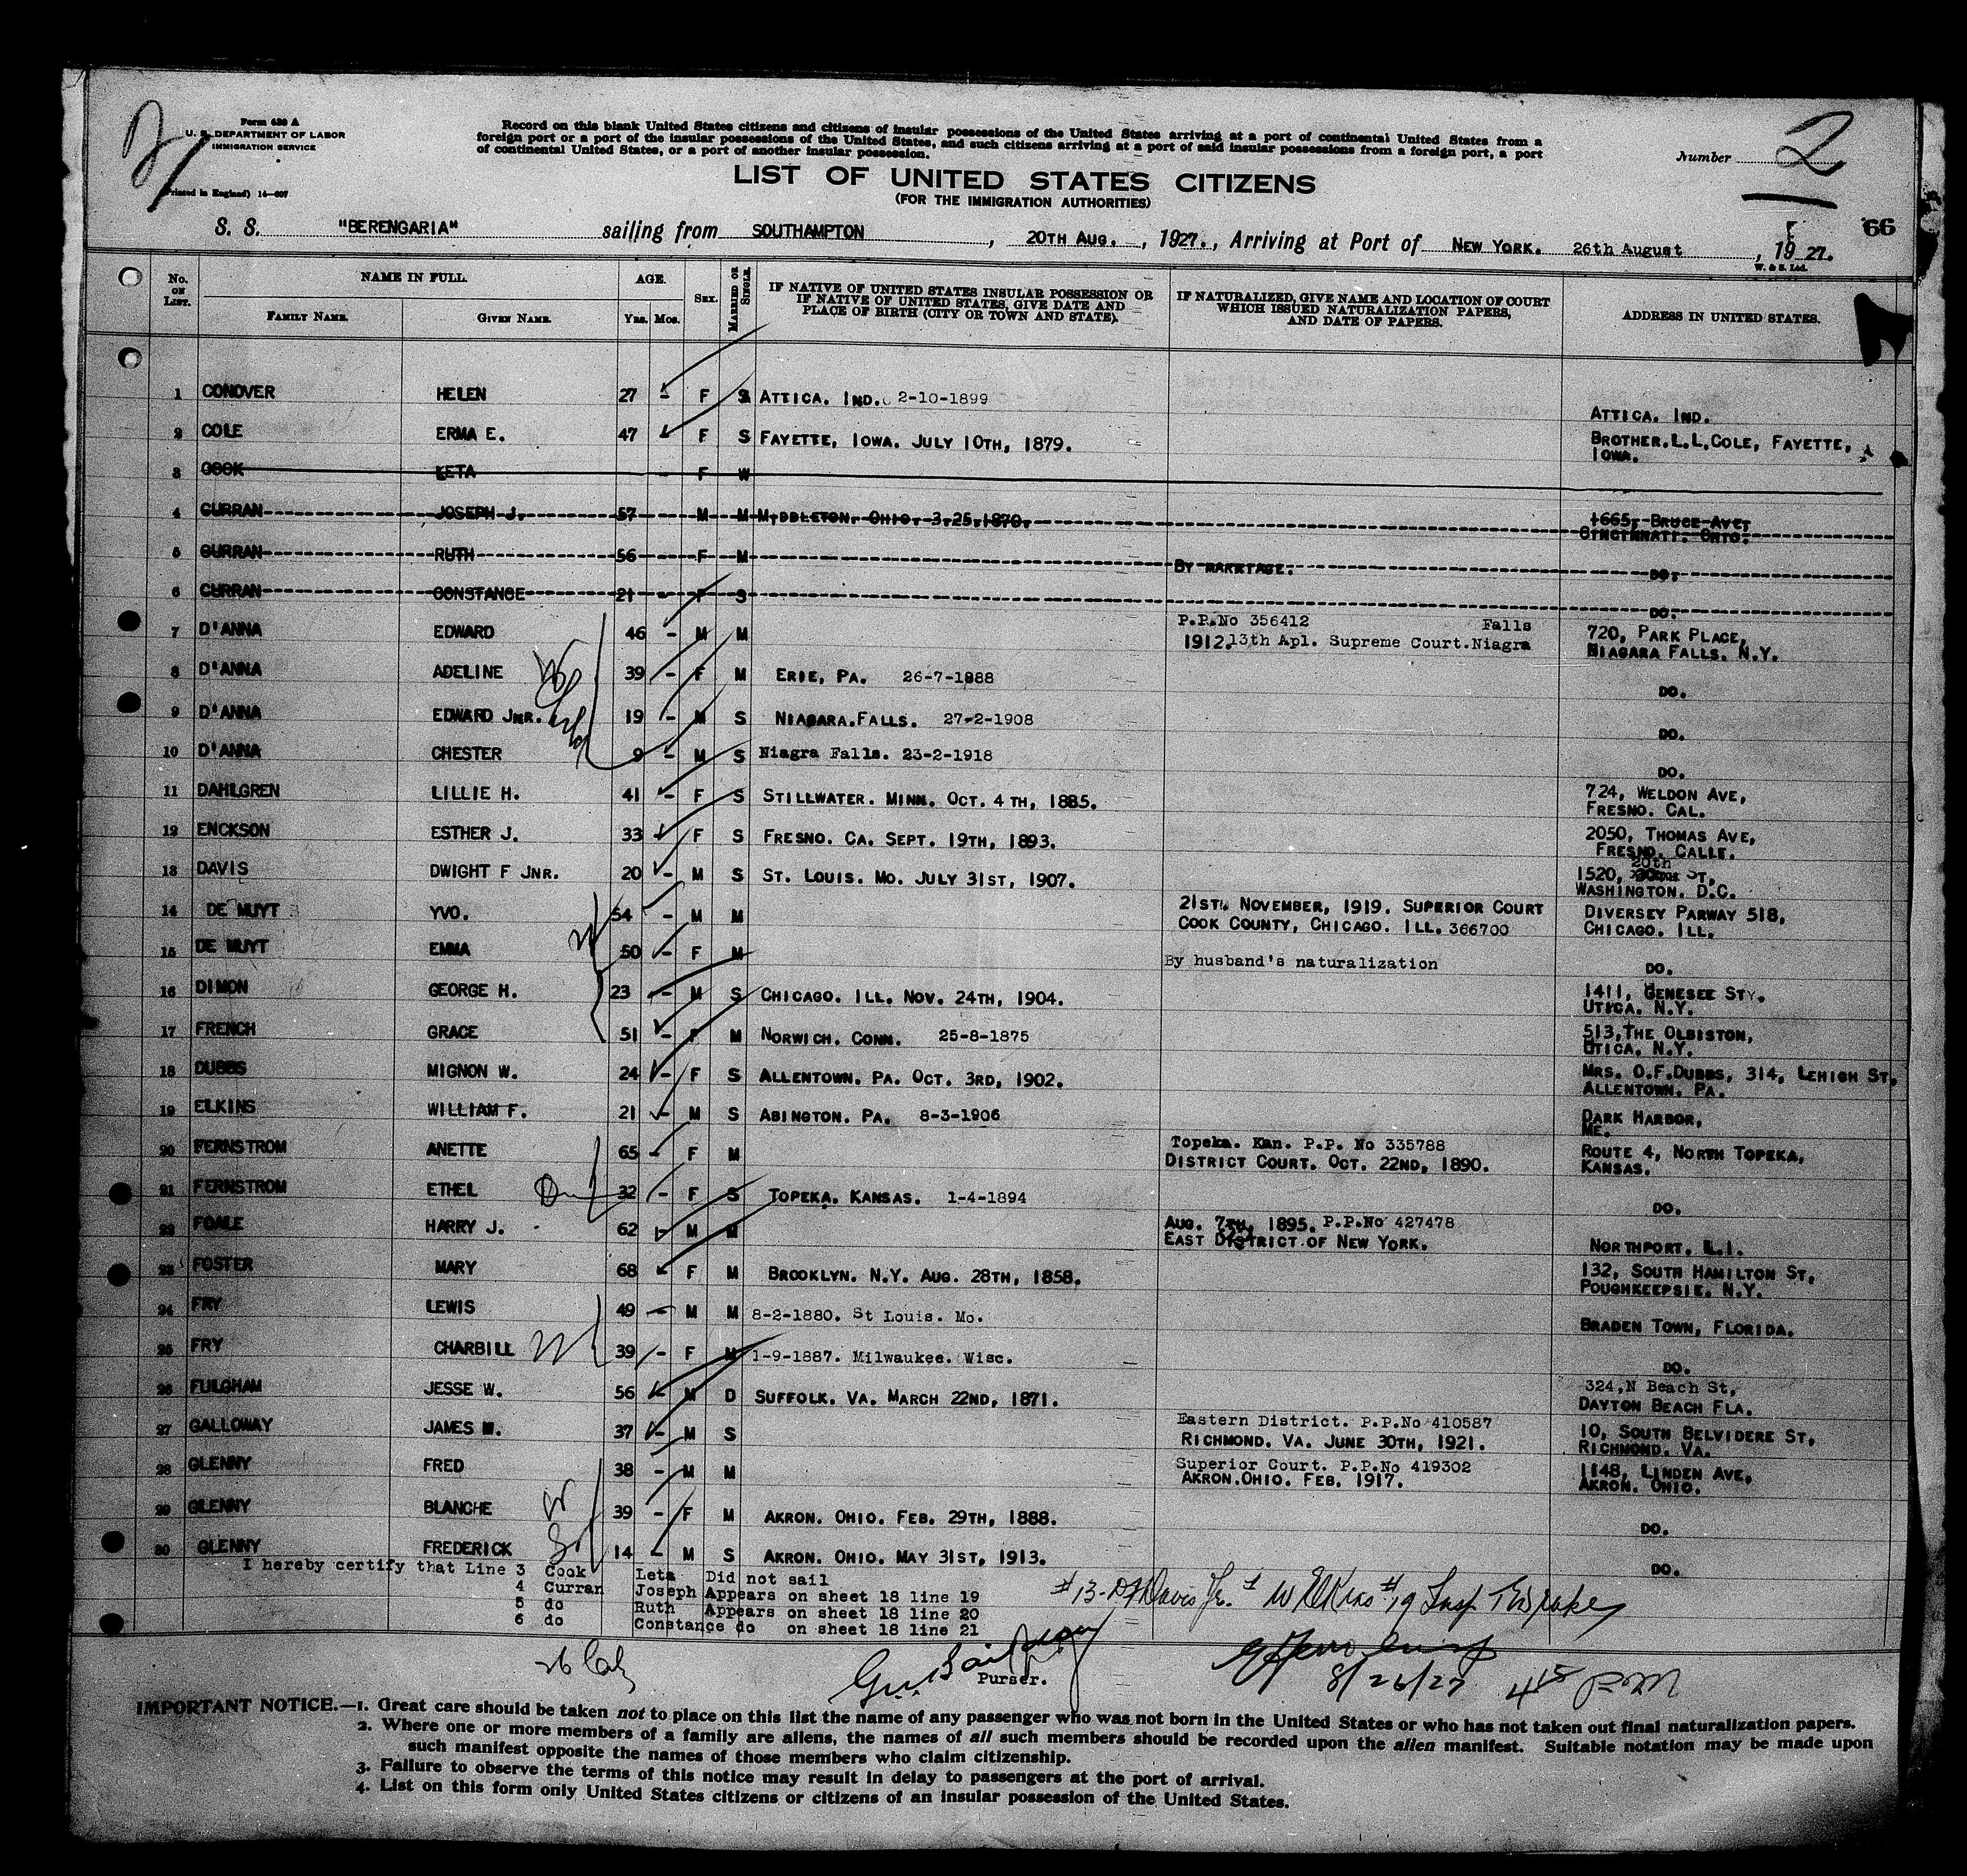 Form 630 A
U. S. DEPARTMENT OF LABOR
IMMIGRATION SERVICE
(Printed in England) 14—607
Record on this blank United States citizens and citizens of insular possessions of the United States arriving at a port of continental United States from a
foreign port or a port of the insular possessions of the United States, and such citizens arriving at a port of said insular possessions from a foreign port, a port
of continental United States, or a port of another insular possession.
Number 2
LIST OF UNITED STATES CITIZENS
(FOR THE IMMIGRATION AUTHORITIES)
66
S. S. "BERENGARIA" sailing from SOUTHAMPTON, 20TH AUG., 1927., Arriving at Port of NEW YORK. 26th August, 1927.
W. & S. Ltd.
No. ON LIST. NAME IN FULL. AGE. SEX. MARRIED OR SINGLE. IF NATIVE OF UNITED STATES INSULAR POSSESSION OR IF NATIVE OF UNITED STATES, GIVE DATE AND PLACE OF BIRTH (CITY OR TOWN AND STATE). IF NATURALIZED, GIVE NAME AND LOCATION OF COURT WHICH ISSUED NATURALIZATION PAPERS, AND DATE OF PAPERS. ADDRESS IN UNITED STATES.
FAMILY NAME. GIVEN NAME. Yrs. Mos.
1 CONOVER HELEN 27 - F S ATTICA. IND. 2-10-1899 ATTICA. IND.
2 COLE ERMA E. 47 F S FAYETTE, IOWA. JULY 10TH, 1879. BROTHER.L.L.COLE, FAYETTE, IOWA.
3 COOK LETA - F W
4 CURRAN JOSEPH J. 57 - M M MIDDLETON. OHIO. 3.25.1870. 1665, BRUCE AVE, CINCINNATI. OHIO.
5 CURRAN RUTH 56 - F M BY MARRIAGE. DO.
6 CURRAN CONSTANCE 21 - F S DO.
7 D'ANNA EDWARD 46 - M M P.P.No 356412 Falls 1912.13th Apl. Supreme Court.Niagra 720, PARK PLACE, NIAGARA FALLS. N.Y.
8 D'ANNA ADELINE 39 - F M ERIE, PA. 26-7-1888 DO.
9 D'ANNA EDWARD JNR. 19 - M S NIAGARA.FALLS. 27-2-1908 DO.
10 D'ANNA CHESTER 9 - M S Niagra Falls. 23-2-1918 DO.
11 DAHLGREN LILLIE H. 41 - F S STILLWATER. MINN. OCT. 4TH, 1885. 724, WELDON AVE, FRESNO. CAL.
12 ENCKSON ESTHER J. 33 F S FRESNO. CA. SEPT. 19TH, 1893. 2050, THOMAS AVE, FRESNO. CALLF.
13 DAVIS DWIGHT F JNR. 20 - M S ST. LOUIS. MO. JULY 31ST, 1907. 1520, 20th ST, WASHINGTON. D.C.
14 DE MUYT YVO. 54 - M M 21ST. NOVEMBER, 1919. SUPERIOR COURT COOK COUNTY, CHICAGO. ILL. 366700 DIVERSEY PARWAY 518, CHICAGO. ILL.
15 DE MUYT EMMA 50 - F M By husband's naturalization DO.
16 DIMON GEORGE H. 23 - M S CHICAGO. ILL. NOV. 24TH, 1904. 1411, GENESEE STY. UTICA. N.Y.
17 FRENCH GRACE 51 - F M NORWICH. CONN. 25-8-1875 513,THE OLBISTON, UTICA. N.Y.
18 DUBBS MIGNON W. 24 - F S ALLENTOWN. PA. OCT. 3RD, 1902. MRS. O.F.DUBBS, 314, LEHIGH ST, ALLENTOWN. PA.
19 ELKINS WILLIAM F. 21 - M S ABINGTON. PA. 8-3-1906 DARK HARBOR, ME.
20 FERNSTROM ANETTE 65 - F M Topeka. Kan. P.P. No 335788 DISTRICT COURT. OCT. 22ND, 1890. ROUTE 4, NORTH TOPEKA, KANSAS.
21 FERNSTROM ETHEL 32 - F S TOPEKA. KANSAS. 1-4-1894 DO.
22 FOALE HARRY J. 62 - M M AUG. 7TH, 1895. P.P.No 427478 EAST DISTRICT.OF NEW YORK. NORTHPORT. L.I.
23 FOSTER MARY 68 F M BROOKLYN. N.Y. AUG. 28TH, 1858. 132, SOUTH HAMILTON ST, POUGHKEEPSIE. N.Y.
24 FRY LEWIS 49 - M M 8-2-1880. St Louis. Mo. BRADEN TOWN, FLORIDA.
25 FRY CHARBILL 39 - F M 1-9-1887. Milwaukee. Wisc. DO.
26 FULGHAM JESSE W. 56 - M D SUFFOLK. VA. MARCH 22ND, 1871. 324,N Beach St, DAYTON BEACH FLA.
27 GALLOWAY JAMES M. 37 - M S Eastern District. P.P.No 410587 RICHMOND. VA. JUNE 30TH, 1921. 10, SOUTH BELVIDERE ST, RICHMOND. VA.
28 GLENNY FRED 38 - M M Superior Court. P.P.No 419302 AKRON.OHIO. FEB. 1917. 1148, LINDEN AVE, AKRON. OHIO.
29 GLENNY BLANCHE 39 - F M AKRON. OHIO. FEB. 29TH, 1888. DO.
30 GLENNY FREDERICK 14 - M S AKRON. OHIO. MAY 31ST, 1913. DO.
I hereby certify that Line 3 Cook Leta Did not sail
4 Curran Joseph Appears on sheet 18 line 19
5 do Ruth Appears on sheet 18 line 20
6 do Constance do on sheet 18 line 21
#13-DF Davis Jr. & W Elkins #19 Insp
Purser.
8/26/27 4 15 PM
IMPORTANT NOTICE.—1. Great care should be taken not to place on this list the name of any passenger who was not born in the United States or who has not taken out final naturalization papers.
2. Where one or more members of a family are aliens, the names of all such members should be recorded upon the alien manifest. Suitable notation may be made upon
such manifest opposite the names of those members who claim citizenship.
3. Failure to observe the terms of this notice may result in delay to passengers at the port of arrival.
4. List on this form only United States citizens or citizens of an insular possession of the United States.